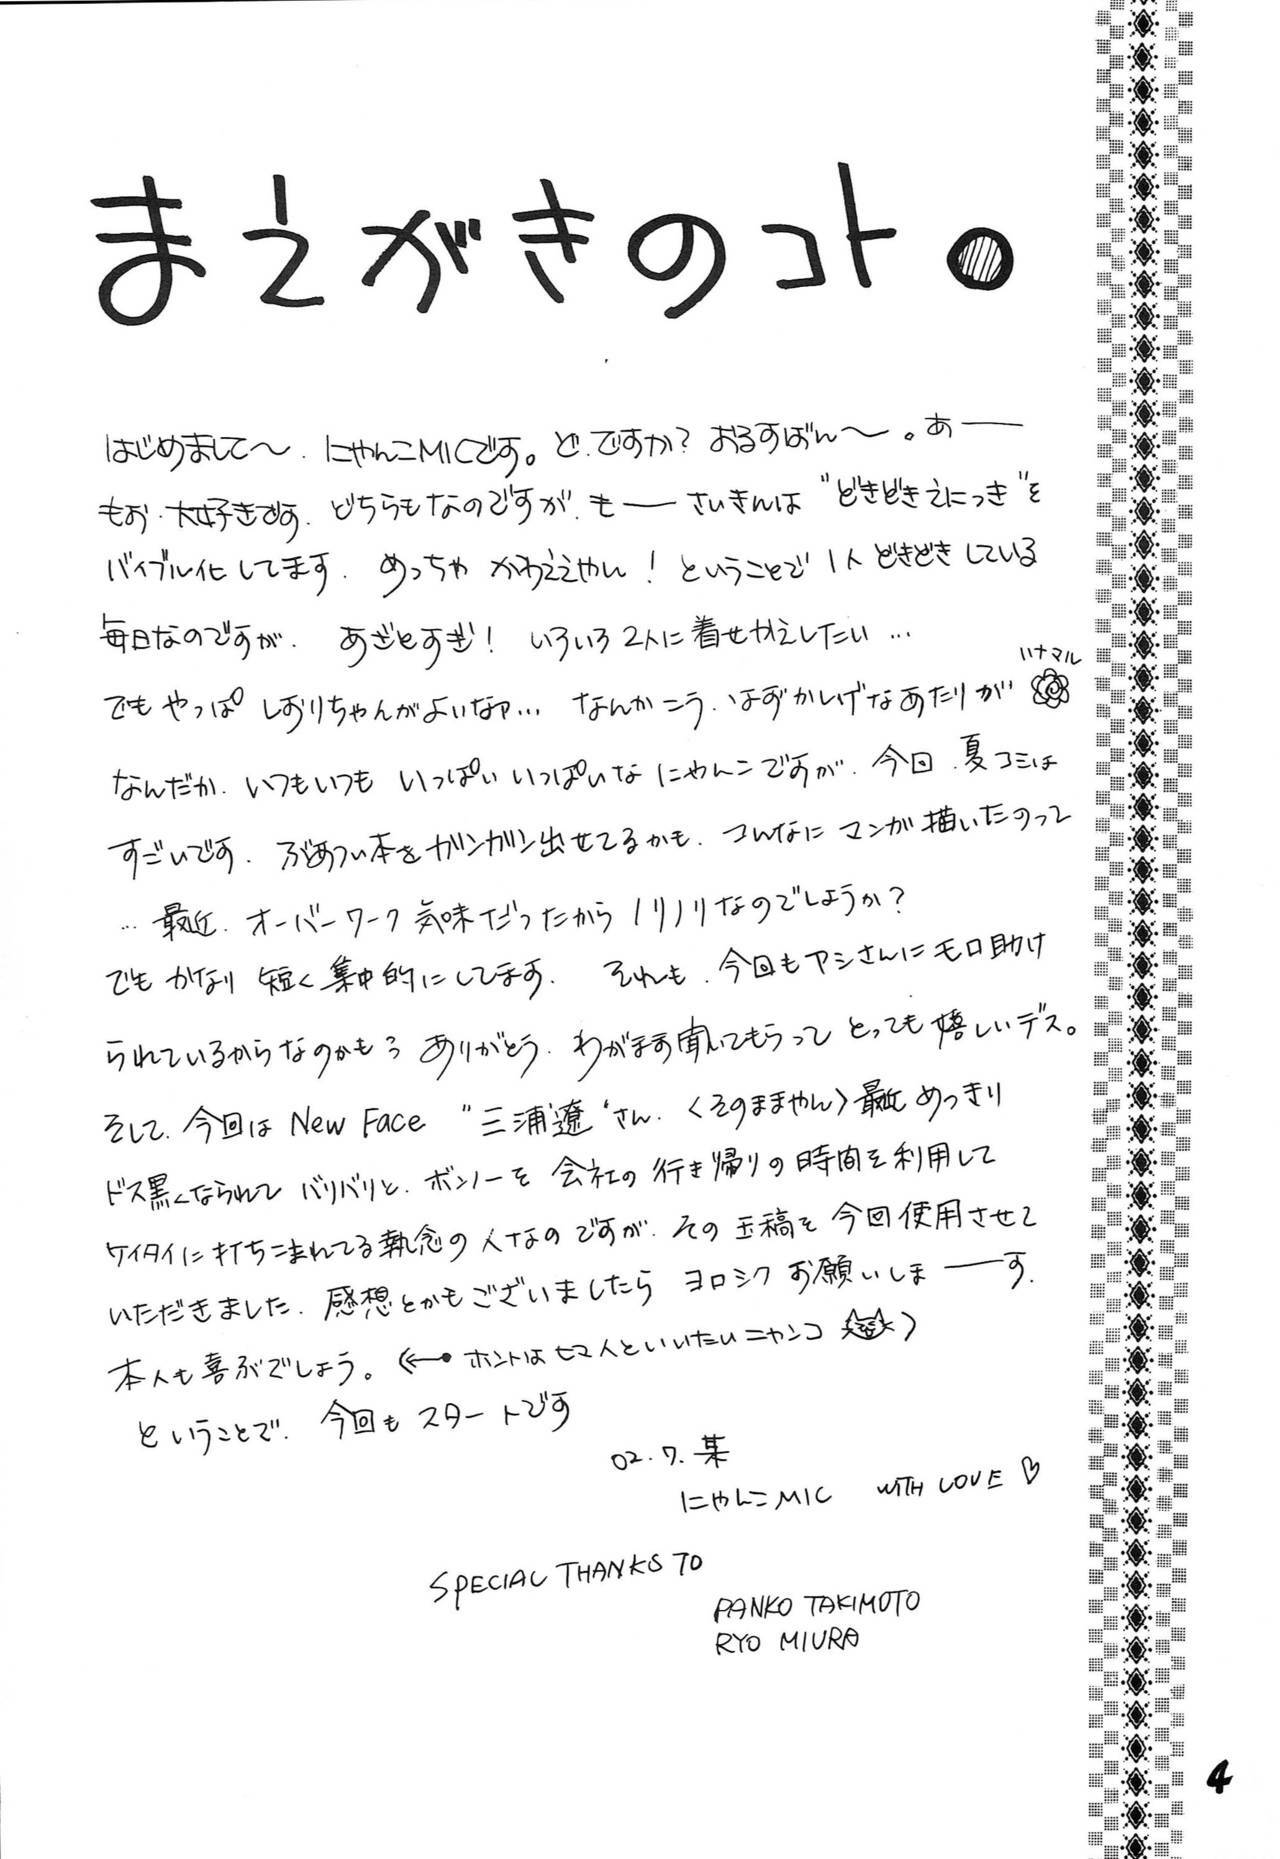 まえがきのコト。
はじめまして〜. にゃんこMICです。ど.ですか? おるすばん〜。あ——
もぉ.大好きです. どちらもなのですが. も——さいきんは "どきどきえにっき"を
バイブル化してます. めっちゃ かわええやん! ということで 1人 どきどきしている
毎日なのですが. あざとすぎ! いろいろ 2人に着せかえしたい...
ハナマル
でも やっぱ しおりちゃんがよいなァ... なんかこう.はずかしげなあたりが
なんだか. いつもいつも いっぱい いっぱいな にゃんこですが. 今回.夏コミは
すごいです. ぶあつい本をガンガン出せてるかも. こんなに マンガ描いたのって
... 最近. オーバーワーク 気味だったから ノリノリなのでしょうか?
でも かなり 短く集中的にしてます. それも. 今回もアシさんにモロ助け
られているからなのかもぅ ありがとう. わがまま聞いてもらって とっても嬉しいデス。
そして. 今回は New Face "三浦遼"さん. 〈そのままやん〉最近 めっきり
ドス黒くなられて バリバリと. ボンノーを 会社の行き帰りの時間を利用して
ケイタイに打ちこまれてる執念の人なのですが. その 玉稿を 今回使用させて
いただきました. 感想とかもございましたら ヨロシク お願いしま——す.
本人も喜ぶでしょう。(←● ホントは ヒマ人といいたいニャンコ )
ということで. 今回も スタートです
02.7.某
にゃんこMIC WITH LOVE ♡
SPECIAL THANKS TO
PANKO TAKIMOTO
RYO MIURA
4